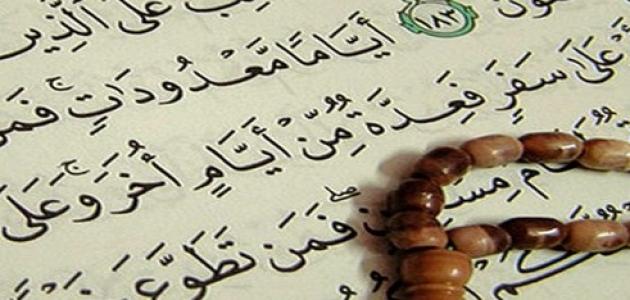 عَلَى الَّذِينَ
١٨٣ أَيَّامًا مَّعْدُودَاتٍ ۚ فَمَن
عَلَىٰ سَفَرٍ فَعِدَّةٌ مِّنْ أَيَّامٍ أُخَرَ ۚ وَعَلَى
ۖ فَمَن تَطَوَّعَ